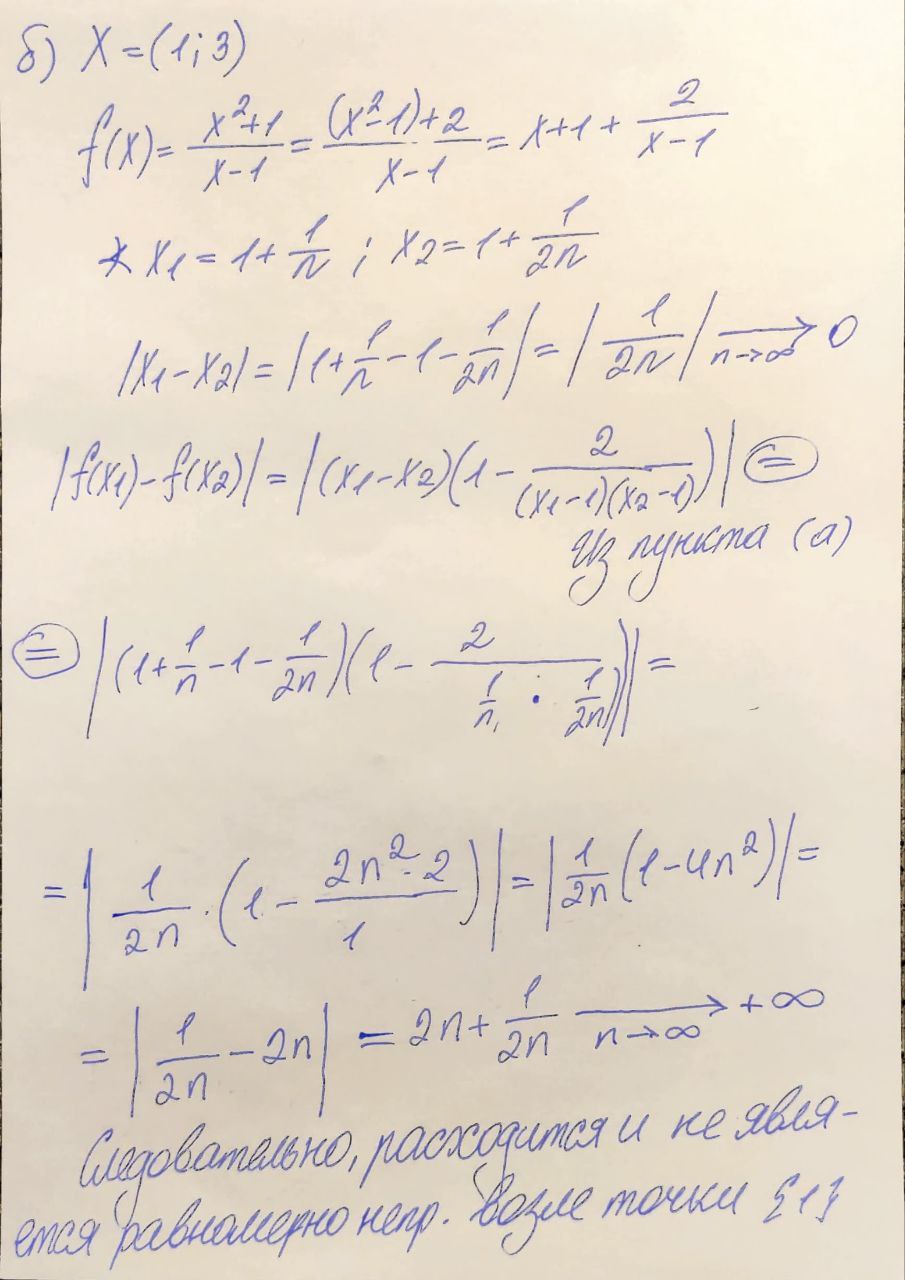 б) X = (1; 3)
f(x) = \frac{x^2+1}{x-1} = \frac{(x^2-1)+2}{x-1} = x+1+\frac{2}{x-1}
* x_1 = 1+\frac{1}{n} ; x_2 = 1+\frac{1}{2n}
|x_1-x_2| = |1+\frac{1}{n}-1-\frac{1}{2n}| = |\frac{1}{2n}| \xrightarrow[n→∞]{} 0
|f(x_1)-f(x_2)| = |(x_1-x_2)(1-\frac{2}{(x_1-1)(x_2-1)})| (=)
Из пункта (а)
(=) |(1+\frac{1}{n}-1-\frac{1}{2n})(1-\frac{2}{\frac{1}{n} · \frac{1}{2n}})| =
= |\frac{1}{2n} · (1-\frac{2n^2·2}{1})| = |\frac{1}{2n}(1-4n^2)| =
= |\frac{1}{2n}-2n| = 2n+\frac{1}{2n} \xrightarrow[n→∞]{} +∞
Следовательно, расходится и не явля-
ется равномерно непр. возле точки {1}